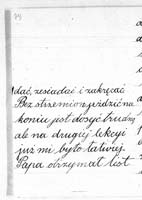 34
dać, zesiadać i zakręcać
Bez strzemion jeździć na
koniu jest dosyć trudno
ale na drugiej lekcyi
już mi było łatwiej
Papa otrzymał list